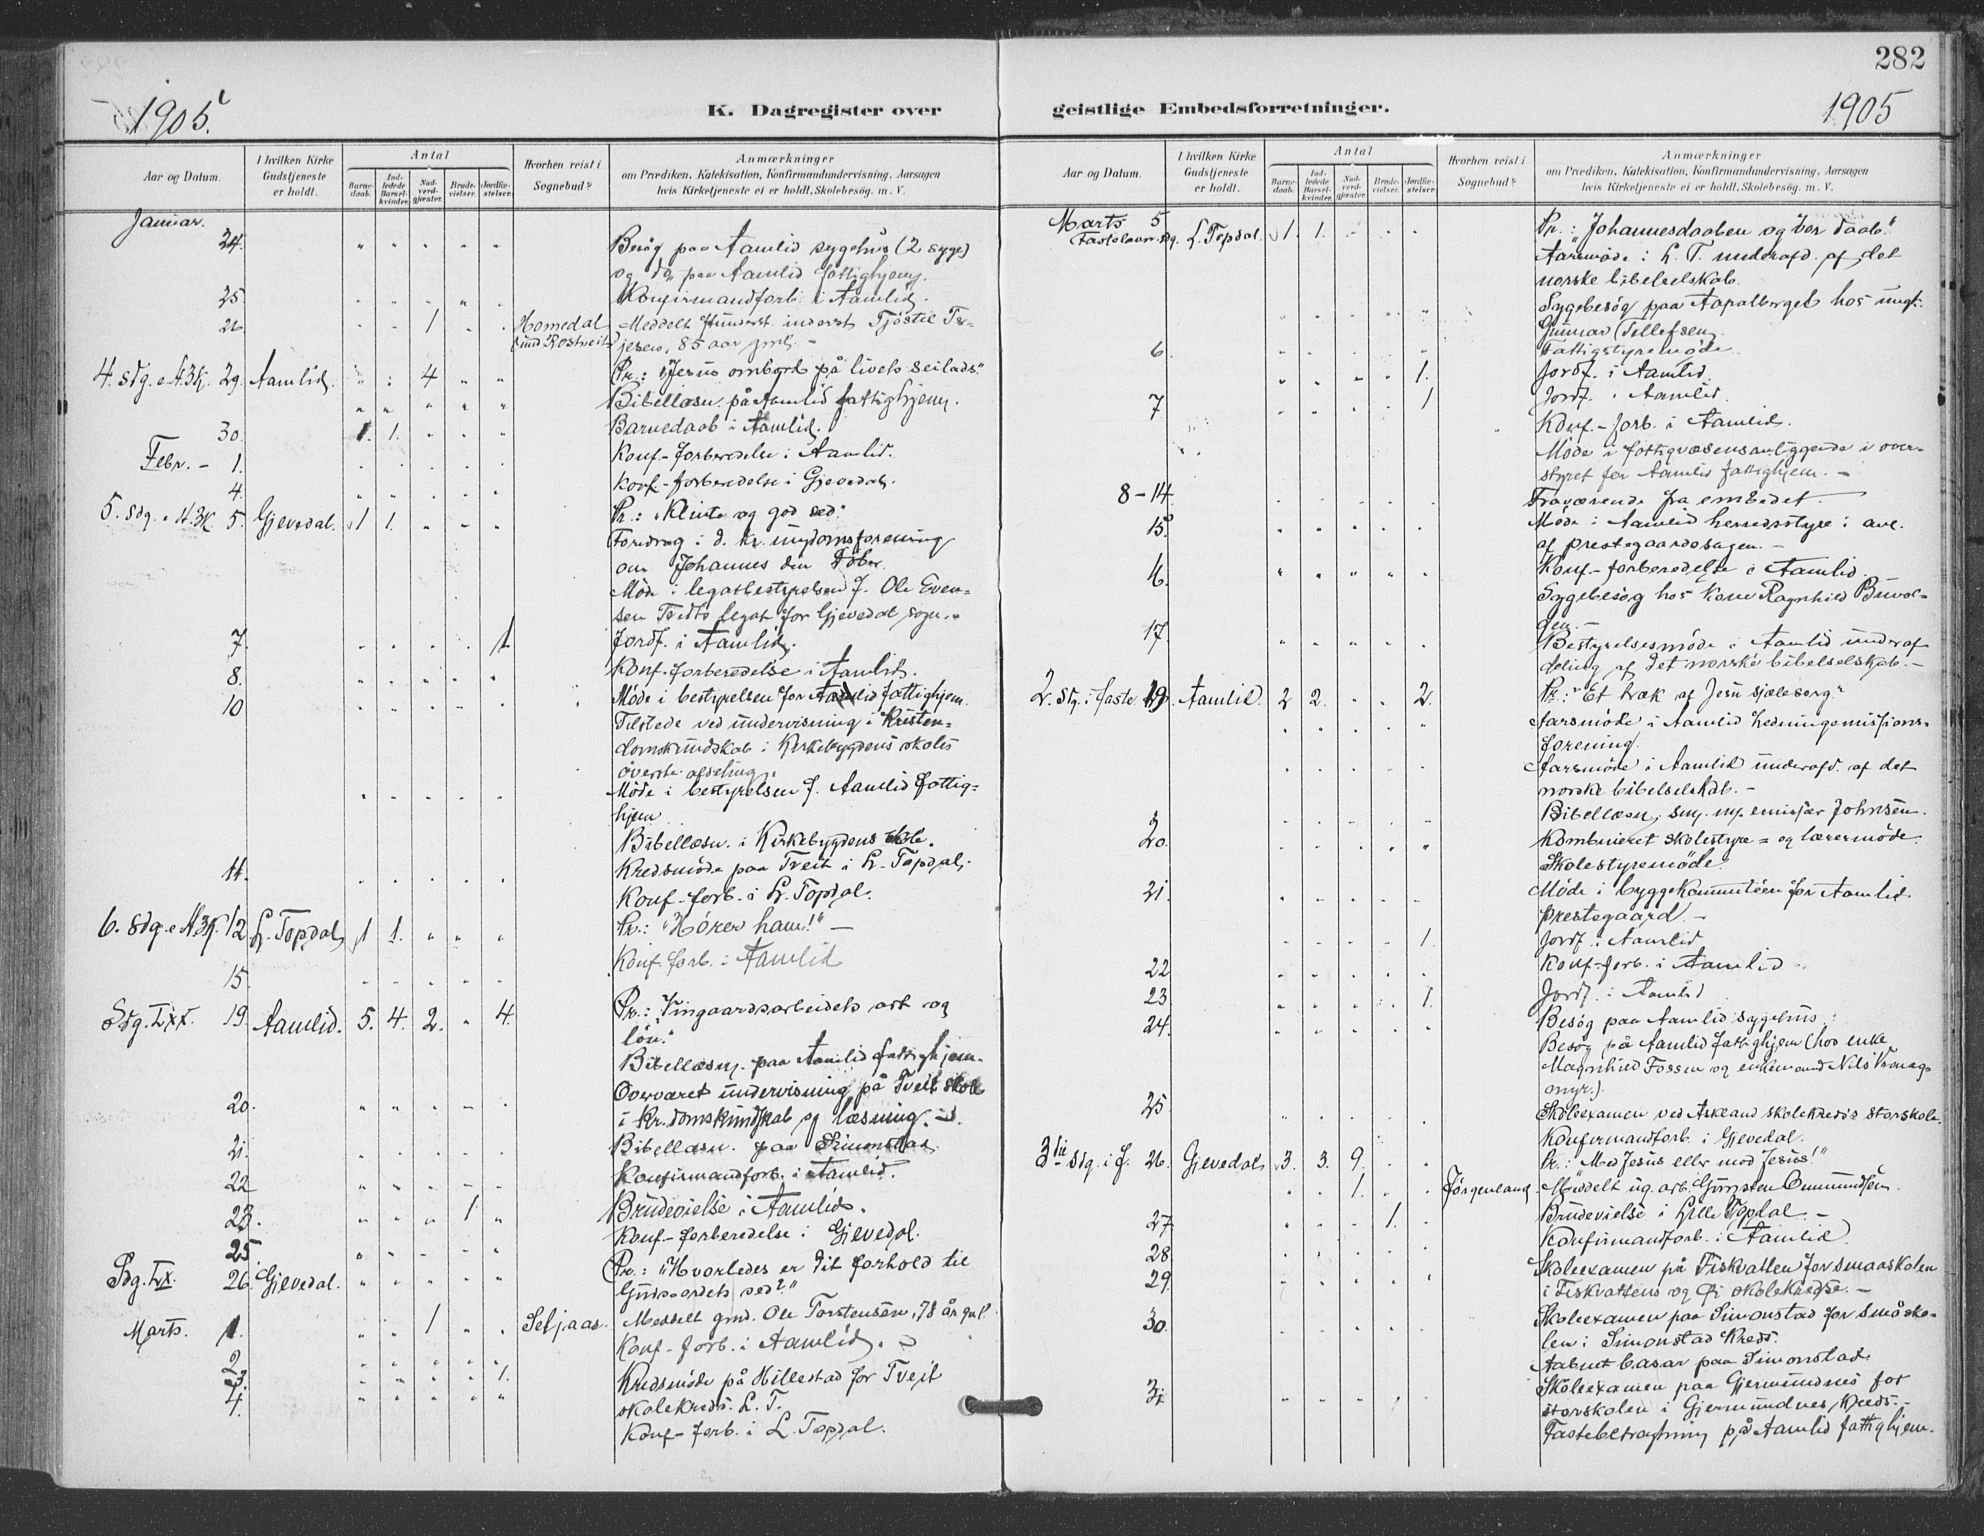 282
1905.
K. Dagregister over
geistlige Embedsforretninger.
1905
Aar og Datum.
I hvilken Kirke Gudstjeneste er holdt.
Antal
Barnedaab.
Indledede Barselkvinder.
Nadverdgjæster.
Brudevielser.
Jordfæstelser.
Hvorhen reist i Sognebud?
Anmærkninger
om Prædiken, Katekisation, Konfirmandundervisning, Aarsagen
hvis Kirketjeneste ei er holdt, Skolebesøg. m. V.
Januar.
24. Besøg paa Aamlid sygehus (2 syge)
og do. paa Aamlid fattighjem.
25 Konfirmandforb. i Aamlid.
26 1 Homedal Meddelt
jesen, 85 aar gml. -
4. sdg. e. H.3K. 29. Aamlid 4 Pr.: "Jesus ombord på livets seilads."
Bibellæsn. på Aamlid fattighjem.
30. 1. 1. Barnedaab i Aamlid.
Febr. - 1. Konf-forberedelse i Aamlid.
4. Konf-forberedelse i Gjevedal.
5. sdg. e. H.3K. 5. Gjevedal. 1 1. Pr.: Klinte og god sed.
Foredrag i d. kr. ungdomsforening
om Johannes den Døber.
Møde i legatbestyrelsen f. Ole Even-
sen Tveits legat for Gjevedal sogn. -
7. 1 Jordf. i Aamlid.
8. Konf-forberedelse i Aamlid.
10 Møde i bestyrelsen for Aamlid fattighjem.
Tilstede ved undervisning i Kristen-
domskundskab i Kirkebygdens skoles
øverste afdeling.
Møde i bestyrelsen f. Aamlid fattig-
hjem
Bibellæsn. i Kirkebygdens skole.
11. Kredsmøde paa Tveit i L. Topdal.
Konf-forb. i L. Topdal.
6. sdg. e. H.3K. 12 L. Topdal 1 1. Pr.: "Hører ham!" -
15 Konf. forb. i Aamlid
Sdg. Lxx. 19. Aamlid. 5. 4. 2. 4. Pr.: "Vingaardsarbeidets art og
løn."
Bibellæsn. paa Aamlid fattighjem.
20. Overværet undervisning på Tveit skole
i kr.domskundskab og læsning. -
21. Bibellæsn. paa Simonstad
22 Konfirmandforb. i Aamlid.
23. 1 Brudevielse i Aamlid.
25. Konf-forberedelse i Gjevedal.
Sdg. Lx. 26. Gjevedal. Pr.: "Hvorledes er dit forhold til
Gudsordets sed?"
Marts. 1. 1 Seljaas. Meddelt gmd. Ole Torstensen, 78 år gml.
Konf-forb. i Aamlid. -
2.
3. 1. Kredsmøde på Hillestad for Tveit
4. skolekreds. L. T.
Konf-forb. i L. Topdal.
Aar og Datum.
I hvilken Kirke Gudstjeneste er holdt.
Antal
Barnedaab.
Indledede Barselkvinder.
Nadverdgjæster.
Brudevielser.
Jordfæstelser.
Hvorhen reist i Sognebud?
Anmærkninger
om Prædiken, Katekisation, Konfirmandundervisning, Aarsagen
hvis Kirketjeneste ei er holdt, Skolebesøg. m. V.
Marts 5 Fastelavnsdg. L. Topdal. 1. 1. Pr.: "Johannesdaaben og vor daab."
Aarsmøde i L. T. underafd. af det
norske bibelselskab.
Sygebesøg paa Aapalberget hos ungk.
Gunnar Tellefsen.
6. Fattigstyremøde.
1. Jordf. i Aamlid.
7 1 Jordf. i Aamlid.
Konf-forb. i Aamlid.
Møde i fattigvæsensanliggende i over-
styret for Aamlid fattighjem. -
8-14 Fraværende fra embedet -
15. Møde i Aamlid herredsstyre i anl.
af prestegaardssagen. -
16. Konf-forberedelse i Aamlid.
Sygebesøg hos kone Ragnhild Buvol-
den. -
17. Bestyrelsesmøde i Aamlid underaf-
deling af det norske bibelselskab. -
2. sdg. i faste 19. Aamlid. 2 2. 2. Pr.: "Et træk af Jesu sjælesorg."
Aarsmøde i Aamlid hedningemissions-
forening.
Aarsmøde i Aamlid underafd. af det
norske bibelselskab. -
Bibellæsn. sm. m. emissær Johnsen.
20. Kombineret skolestyre- og lærermøde.
Skolestyremøde
21. Møde i byggekommiteen for Aamlid
prestegaard -
1. Jordf. i Aamlid
22 Konf-forb. i Aamlid
23. 1. Jordf. i Aamlid
24. Besøg paa Aamlid sygehus.
Besøg på Aamlid fattighjem (hos enke
Magnhild Fossen og enkemand Nils
myr.)
25 Skoleexamen ved Askland skolekreds's storskole.
Konfirmandforb. i Gjevedal.
3die sdg. i f. 26. Gjevedal. 3. 3. 9. Pr.: "Med Jesus eller mod Jesus!"
1. Jørgenland Meddelt ug. arb. Gunsten Ommundsen.
27. 1. Brudevielse i Lille Topdal. -
28. Konfirmandforb. i Aamlid.
29. Skoleexamen på Fiskvatten for smaaskolen
i Fiskvattens og Øi skolekredse. -
30. Skoleexamen paa Simonstad for småsko-
len i Simonstad kreds.
Aabnet basar paa Simonstad
31 Skoleexamen paa Gjermundnes for
storskolen i Gjermundnes kreds. -
Fastebetragtning på Aamlid fattighjem.